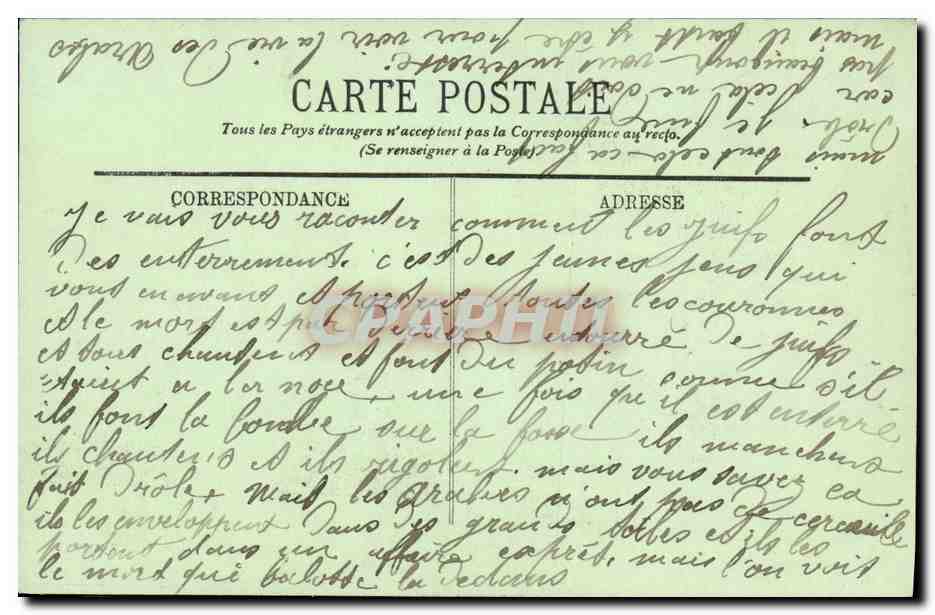 CARTE POSTALE
Tous les Pays étrangers n'acceptent pas la Correspondance au recto.
(Se renseigner à la Poste)
CORRESPONDANCE
ADRESSE
Je vais vous raconter comment les juifs font
des enterrement. c'est des jeunes jens qui
vont en avant et porte toutes les couronnes
et le mort est par derière entourré de juifs
et tous chantent et font du potin comme s'il
étaient a la noce, une fois qu'il est enterré
ils font la bombe sur la fosse ils manchent
ils chantent et ils rigolent. mais vous savez ca
fait drôle. Mais les arabes n'ont pas de cercueile
ils les enveloppent dans des grands toiles et ils les
portent dans un affaire exprét, mais l'on voit
le mort qui balotte la dedans
mais tout cela ca fait
drôle. je
car cela ne doit
pas beaucoup vous interressé
mais il faut y être pour voir la vie des Arabes
CPAPHIL